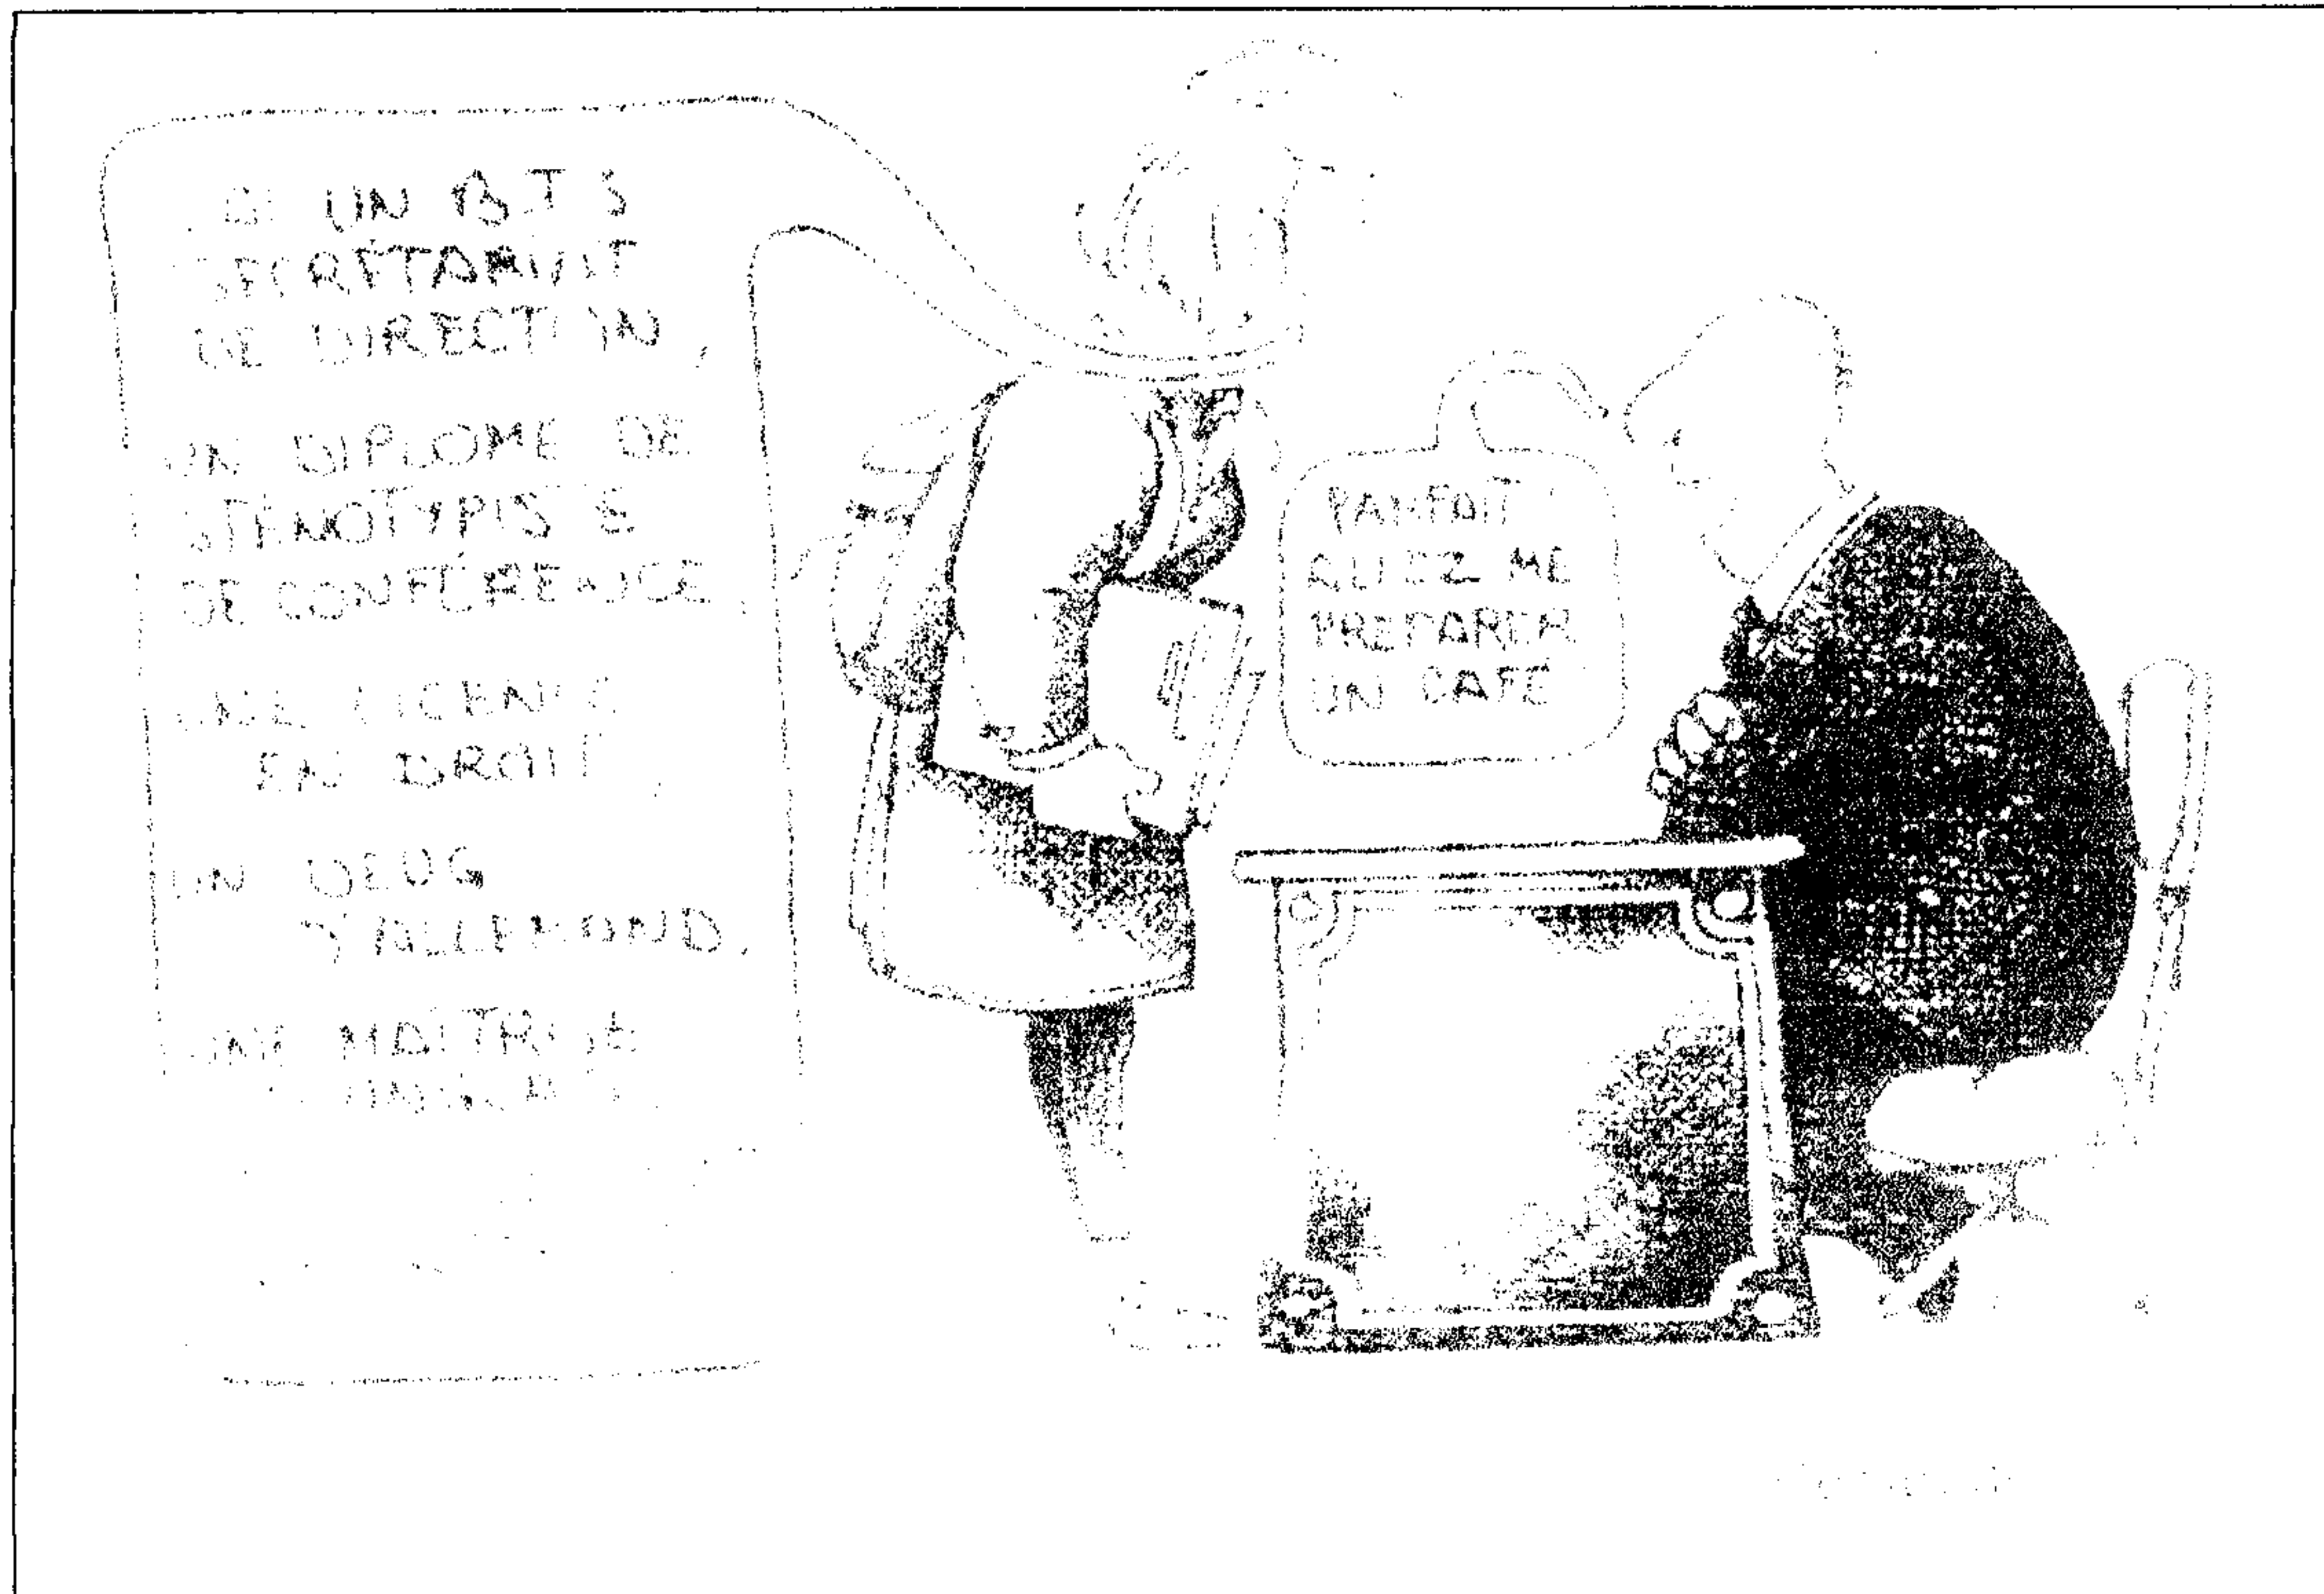 J'AI UN B.T.S
SECRÉTARIAT
DE DIRECTION,
UN DIPLOME DE
STÉNOTYPISTE
DE CONFÉRENCE,
UNE LICENCE
EN DROIT,
UN DEUG
D'ALLEMAND,
UNE MAITRISE
PARFAIT !
ALLEZ ME
PREPARER
UN CAFÉ